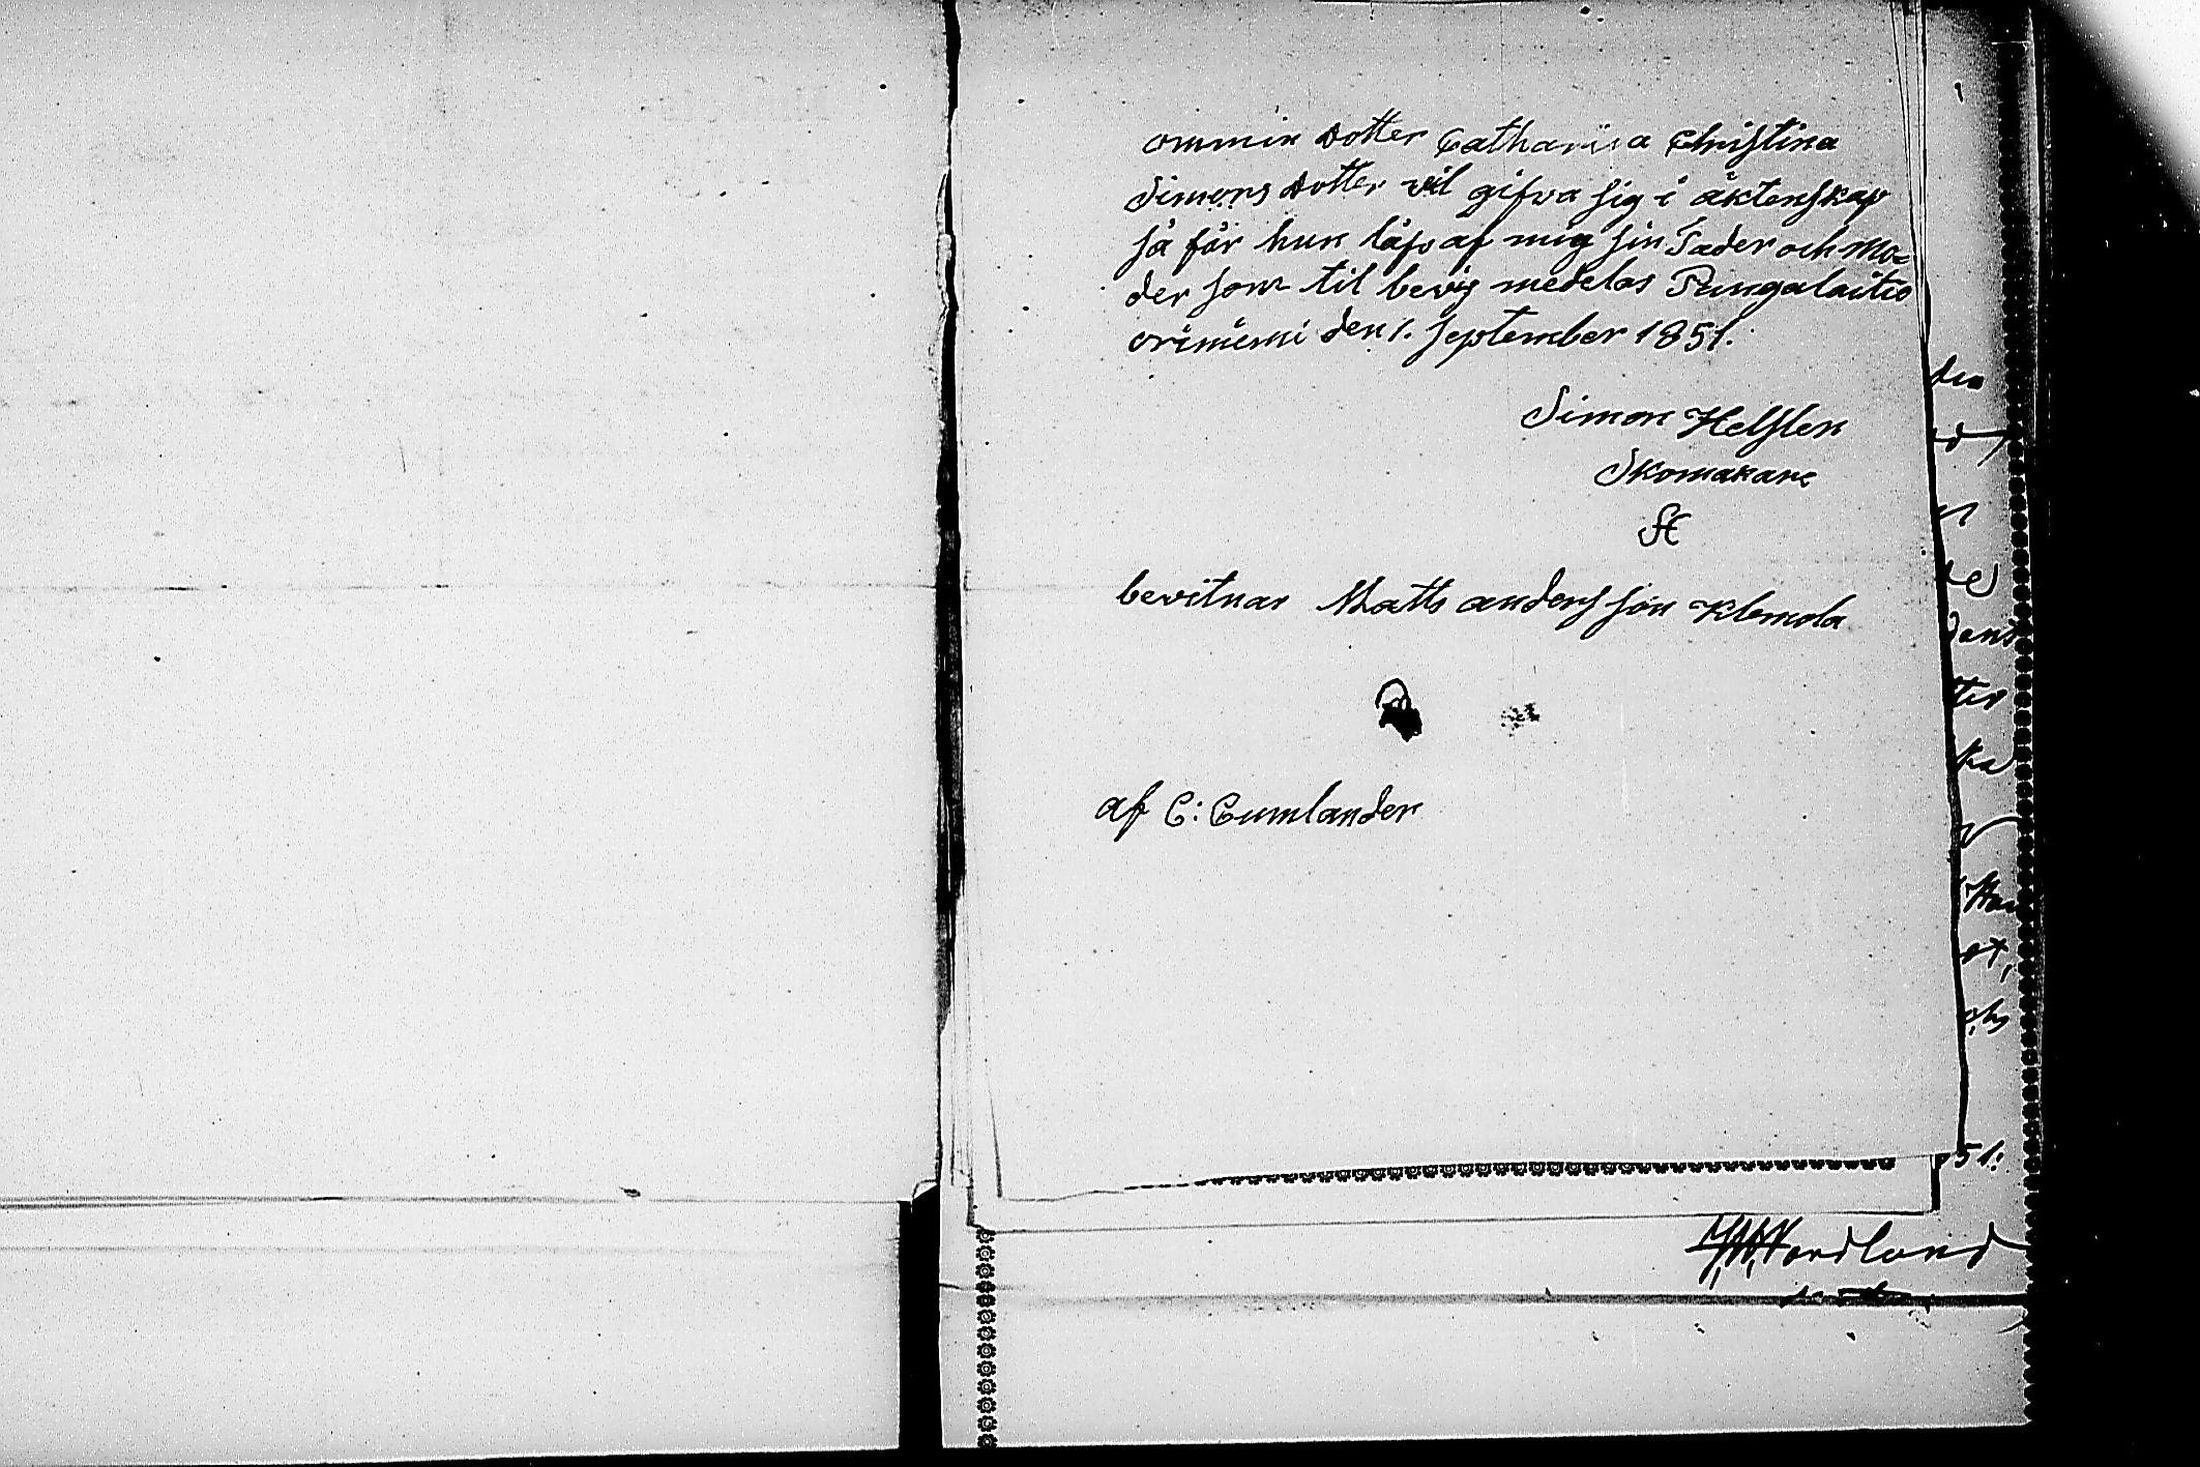 ommin dotter Catharina Christina
Simons dotter vil gifva sig i äktenskap
så får hun låfs af mig sin Fader och Mo=
der som til bevis medelas Pungalaitio
den 1. September 1851.
Simon Helslen
Skomakare
SH
bevitnar Matts anders son Klemola
af C: Cumlander
den
dens
ter
ka
et,
51.
Nordlund